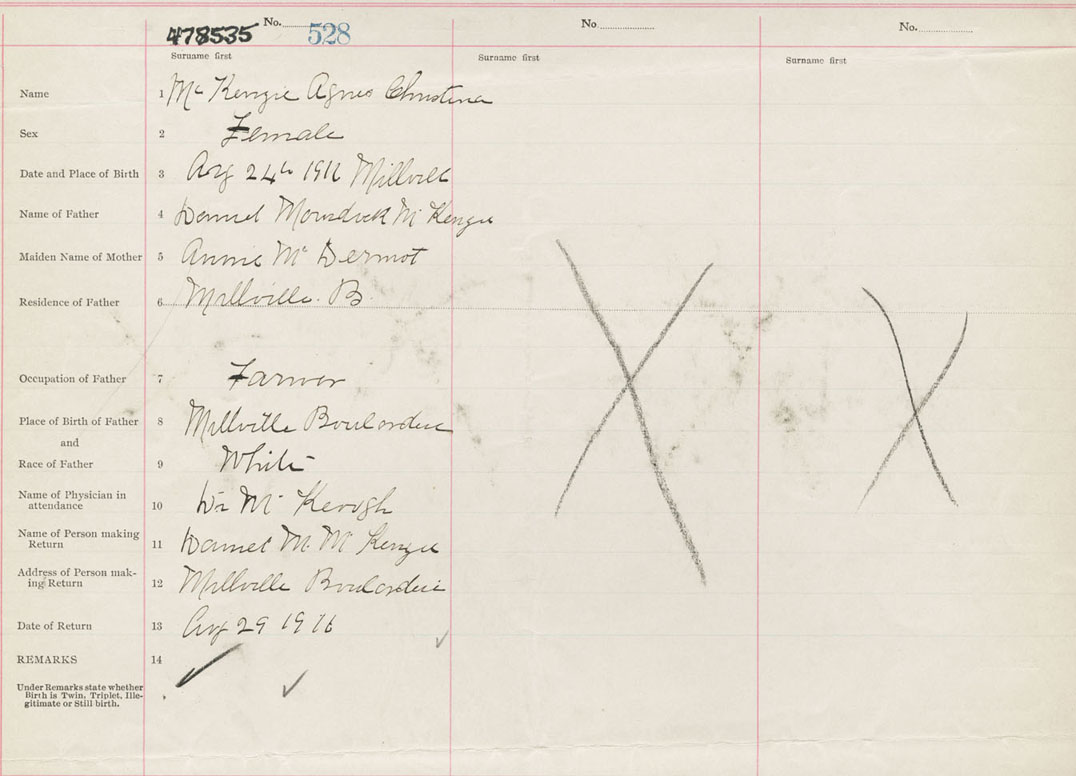 478535 No. 528 No. No.
Surname first Surname first Surname first
Name 1 Mc Kenzie Agnes Christena
Sex 2 Female
Date and Place of Birth 3 Aug 24th 1916 Millville
Name of Father 4 Daniel Murdock Mc Kenzie
Maiden Name of Mother 5 Annie Mc Dermot
Residence of Father 6 Millville. B
Occupation of Father 7 Farmer
Place of Birth of Father 8 Millville Boulardrie
and
Race of Father 9 White
Name of Physician in
attendance 10 Dr Mc Keough
Name of Person making
Return 11 Daniel M. Mc Kenzie
Address of Person mak-
ing Return 12 Millville Boulardrie
Date of Return 13 Aug 29 1916
REMARKS 14
Under Remarks state whether
Birth is Twin, Triplet, Ille-
gitimate or Still birth.